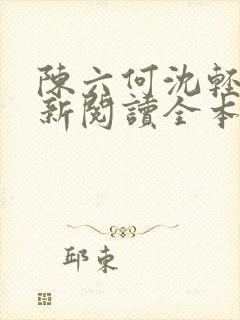 陳六何沈輕
新閱讀全本
邱東